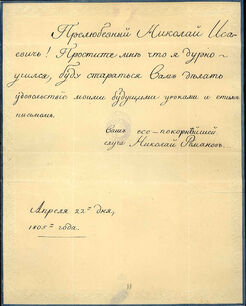 Прелюбезный Николай Иса-
евичь! Простите мнѣ что я дурно
учился, буду стараться Вамъ дѣлать
удовольствіе моими будущими уроками и етимъ
письмомъ.
Вашъ все-покорнѣйшей
слуга Николай Романовъ...
Апреля 22го дня,
1805го года.